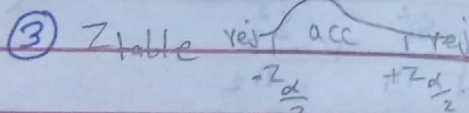 ③ Z table rej acc rej
-Z α/2 +Z α/2